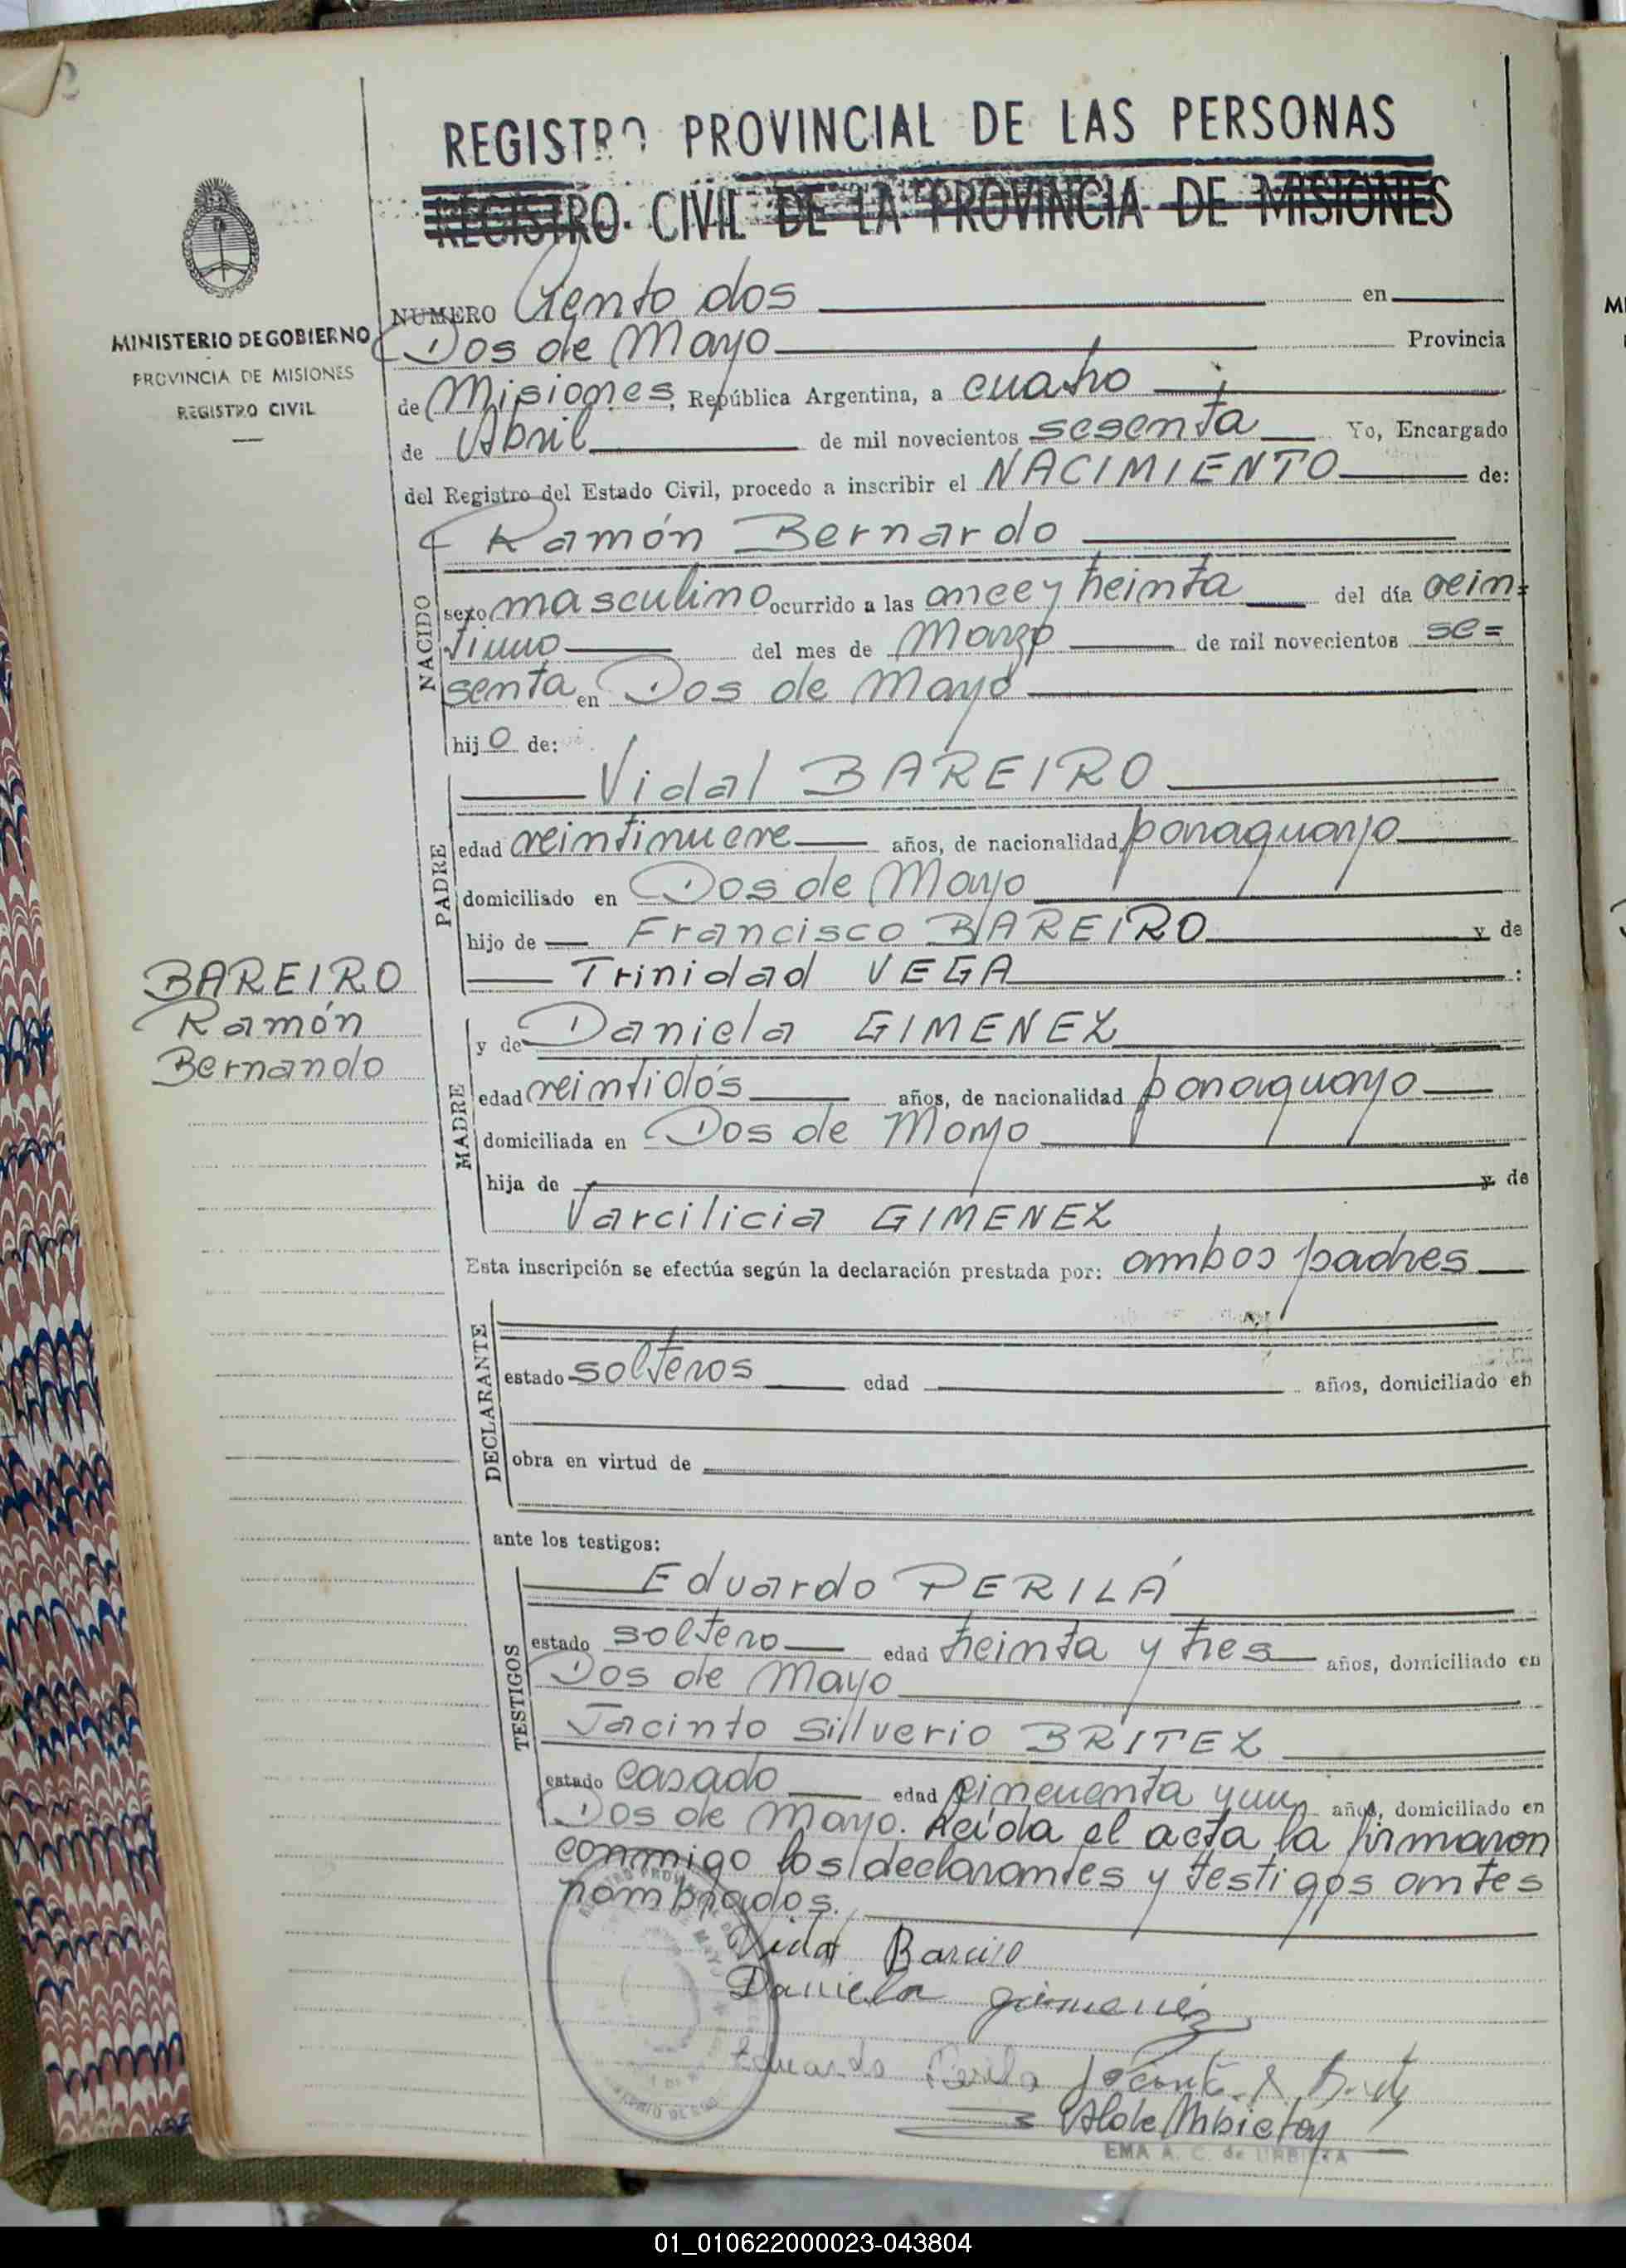 REGISTRO PROVINCIAL DE LAS PERSONAS
REGISTRO CIVIL DE LA PROVINCIA DE MISIONES
MINISTERIO DE GOBIERNO
PROVINCIA DE MISIONES
REGISTRO CIVIL
NUMERO Ciento dos en
Dos de Mayo Provincia
de Misiones, República Argentina, a cuatro
de Abril de mil novecientos sesenta Yo, Encargado
del Registro del Estado Civil, procedo a inscribir el NACIMIENTO de:
Ramón Bernardo
NACIDO
sexo masculino ocurrido a las once y treinta del día vein=
tiuno del mes de Marzo de mil novecientos se=
senta en Dos de Mayo
hijo de:
PADRE
Vidal BAREIRO
edad veintinueve años, de nacionalidad paraguayo
domiciliado en Dos de Mayo
hijo de Francisco BAREIRO y de
Trinidad VEGA :
BAREIRO
Ramón
Bernardo
MADRE
y de Daniela GIMENEZ
edad veintidós años, de nacionalidad paraguayo
domiciliada en Dos de Mayo
hija de y de
Varcilicia GIMENEZ
Esta inscripción se efectúa según la declaración prestada por: ambos padres
DECLARANTE
estado solteros edad años, domiciliado en
obra en virtud de
ante los testigos:
TESTIGOS
Eduardo PERILÁ
estado soltero edad treinta y tres años, domiciliado en
Dos de Mayo
Jacinto Sillverio BRITEZ
estado casado edad cincuenta y un años, domiciliado en
Dos de Mayo. Leída el acta la firmaron
conmigo los declarantes y testigos antes
nombrados.
Vidal Bareiro
Daniela gimenez
Eduardo Perila
EMA A. C. de URBIETA
01_010622000023-043804